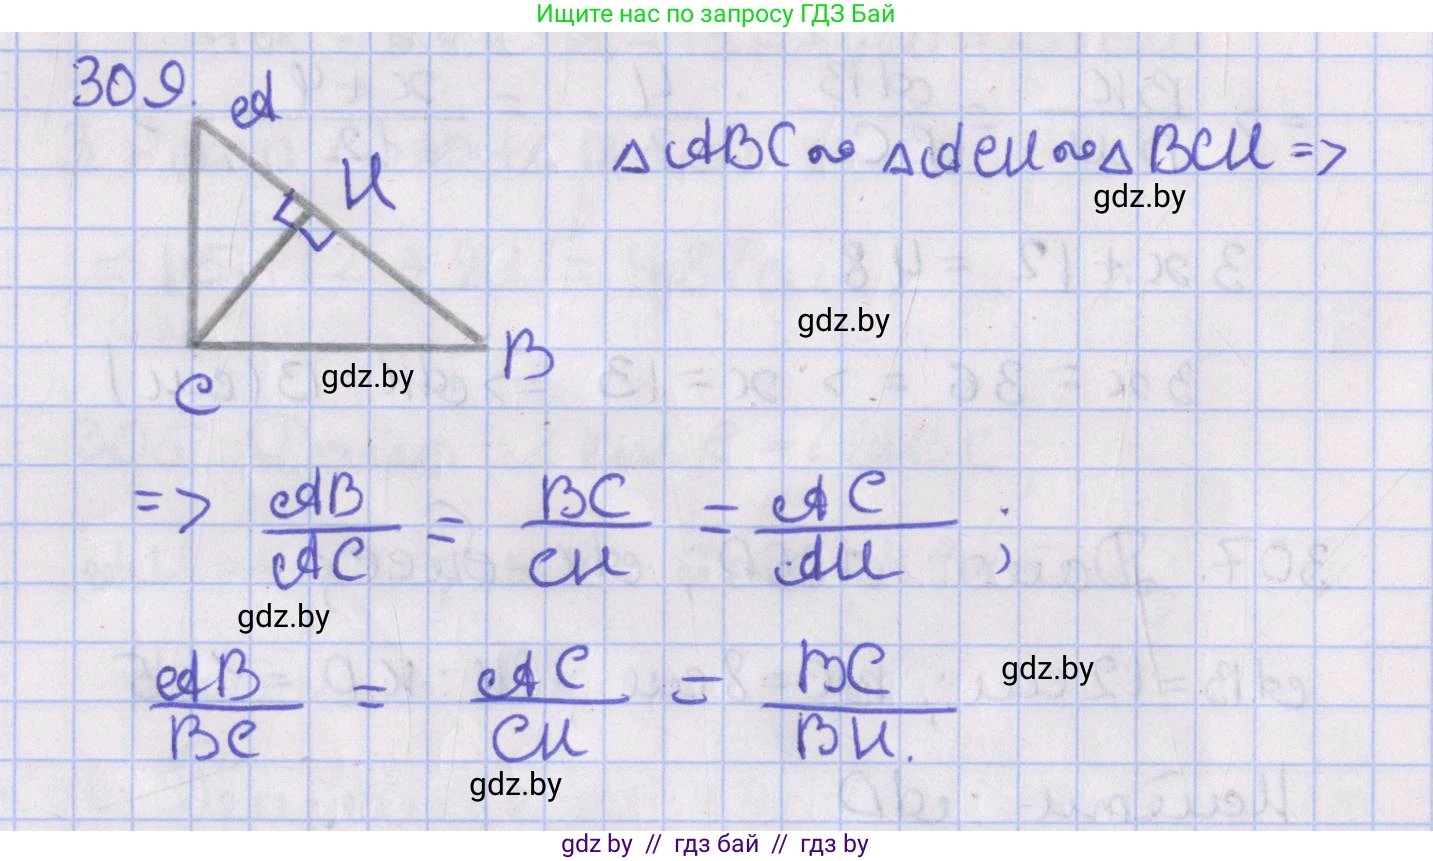 Ищите нас по запросу ГДЗ Бай
309.
A
H
C
B
△ABC ∾ △ACH ∾ △BCH =>
gdz.by
gdz.by
gdz.by
=> AB/AC = BC/CH = AC/AH ;
gdz.by
AB/BC = AC/CH = BC/BH.
gdz.by
gdz.by
gdz.by // гдз бай // гдз by